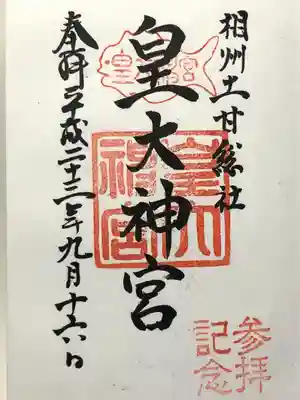 相州土甘総社
参拝
記念
皇大神宮
皇大神宮
皇大
神宮
奉拝 平成二十三年九月十六日